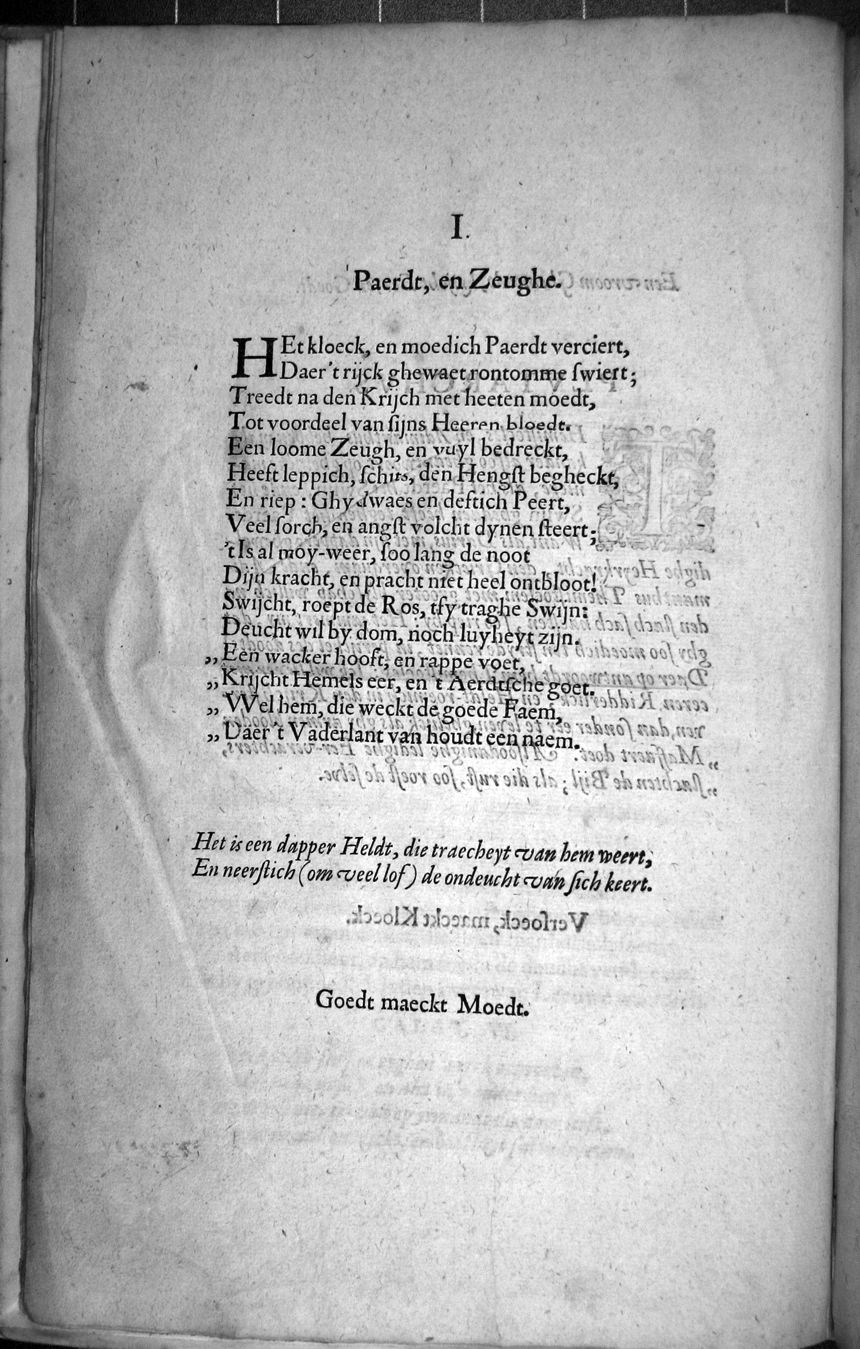 I.
Paerdt, en Zeughe.
HEt kloeck, en moedich Paerdt verciert,
Daer't rijck ghewaet rontomme ſwiert;
Treedt na den Krijch met heeten moedt,
Tot voordeel van ſijns Heeren bloedt.
Een loome Zeugh, en vuyl bedreckt,
Heeft leppich, ſchits, den Hengſt begheckt,
En riep: Ghy dwaes en deftich Peert,
Veel ſorch, en angſt volcht dynen ſteert;
't Is al moy-weer, ſoo lang de noot
Dijn kracht, en pracht niet heel ontbloot!
Swijcht, roept de Ros, tſy traghe Swijn:
Deucht wil by dom, noch luyheyt zijn.
„ Een wacker hooft, en rappe voet,
„ Krijcht Hemels eer, en 't Aerdtſche goet.
„ Wel hem, die weckt de goede Faem,
„ Daer 't Vaderlant van houdt een naem.
Het is een dapper Heldt, die traecheyt van hem weert,
En neerſtich (om veel lof) de ondeucht van ſich keert.
Verſoeck, maeckt Kloeck.
Goedt maeckt Moedt.